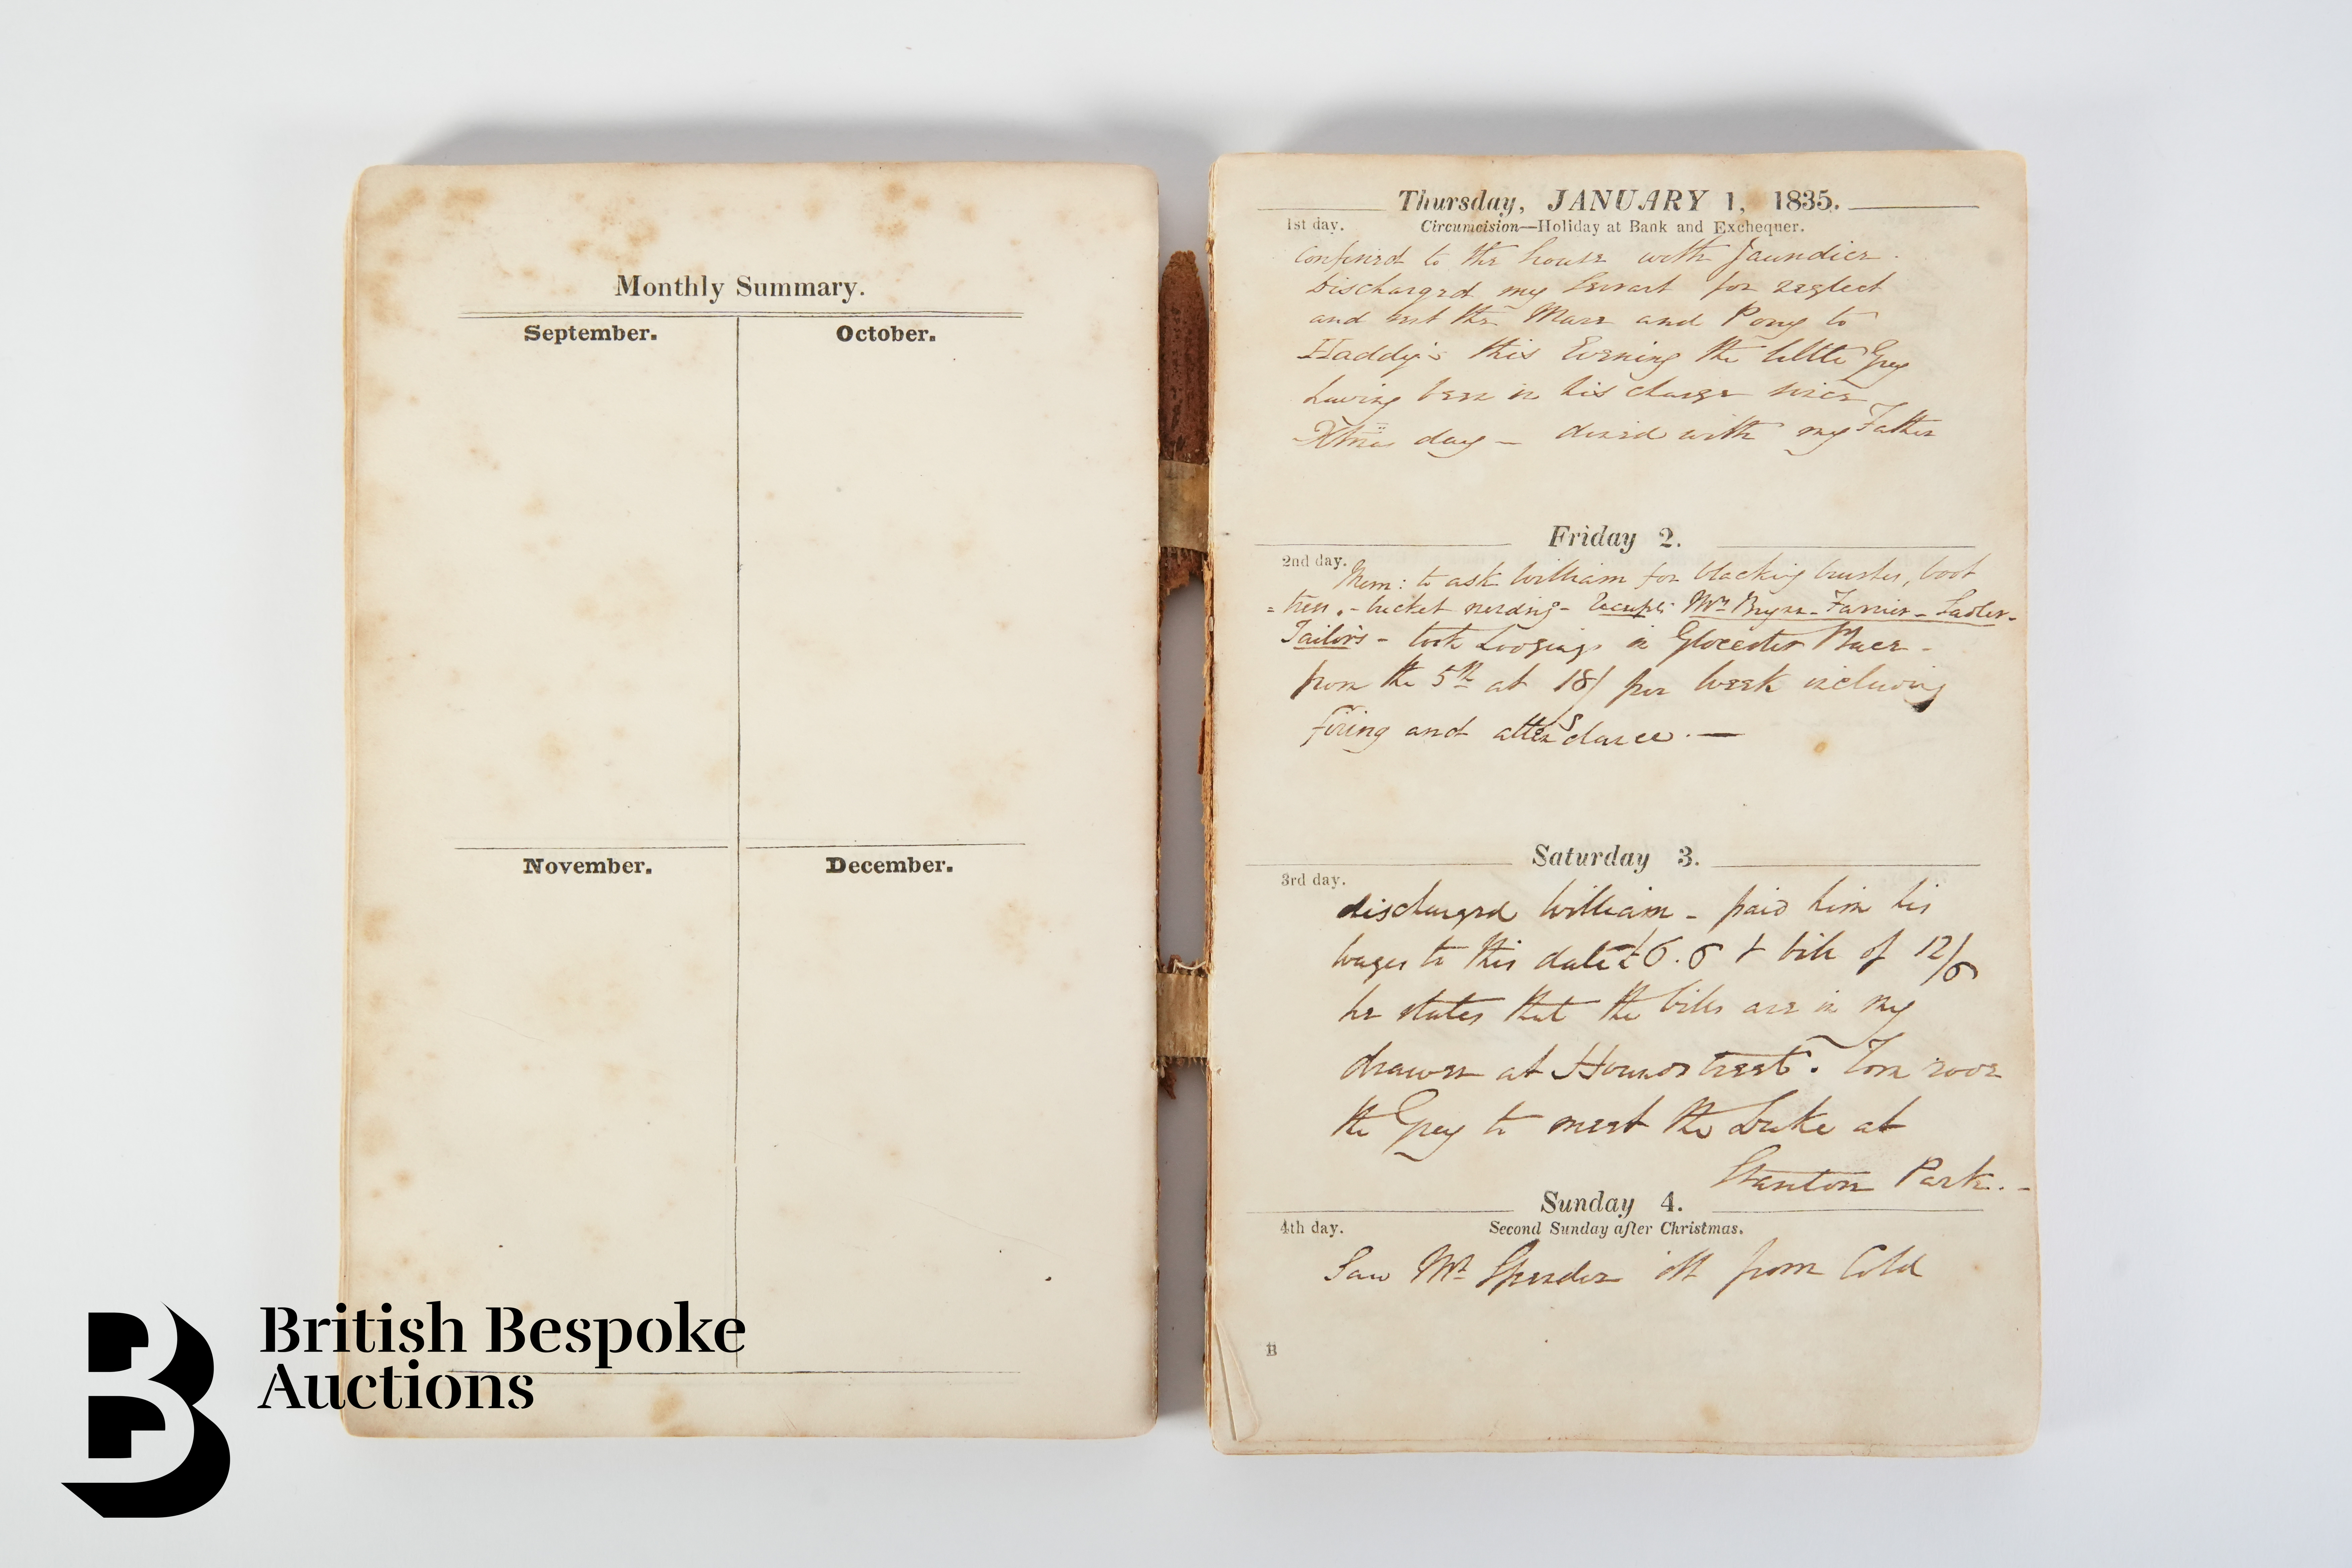 Monthly Summary.
September.
October.
November.
December.
British Bespoke
Auctions
Thursday, JANUARY 1, 1835.
1st day.
Circumcision—Holiday at Bank and Exchequer.
Confined to the house with Jaundice.
Discharged my Servant for neglect
and sent the Mare and Pony to
Haddy's this Evening the little Grey
having been in his charge since
Xmas day — dined with my Father
Friday 2.
2nd day.
Mem: to ask William for blacking brushes, boot
= trees. - bucket mending - Receipts Mr - Farrier - Sadler -
Tailor's - took Lodgings in Glocester Place -
from the 5th at 18/ per week including
firing and attendance. —
Saturday 3.
3rd day.
discharged William - paid him his
wages to this date £6.6 & bill of 12/6
he states that the bills are in my
drawer at Hounstreet. Tom rode
the Grey to meet the Duke at
Stanton Park. -
Sunday 4.
4th day.
Second Sunday after Christmas.
Saw Mr Spender ill from Cold
B